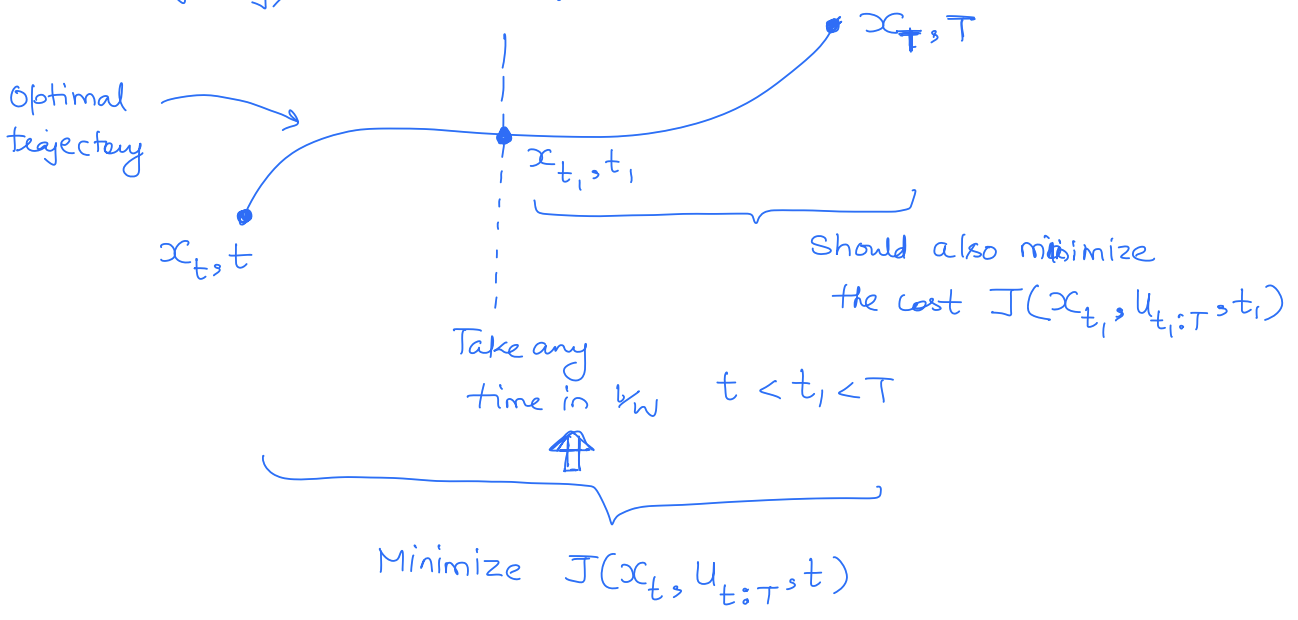 x_T, T
Optimal
trajectory
x_{t_1}, t_1
x_t, t
Should also minimize
the cost J(x_{t_1}, u_{t_1:T}, t_1)
Take any
time in b/w t < t_1 < T
Minimize J(x_t, u_{t:T}, t)